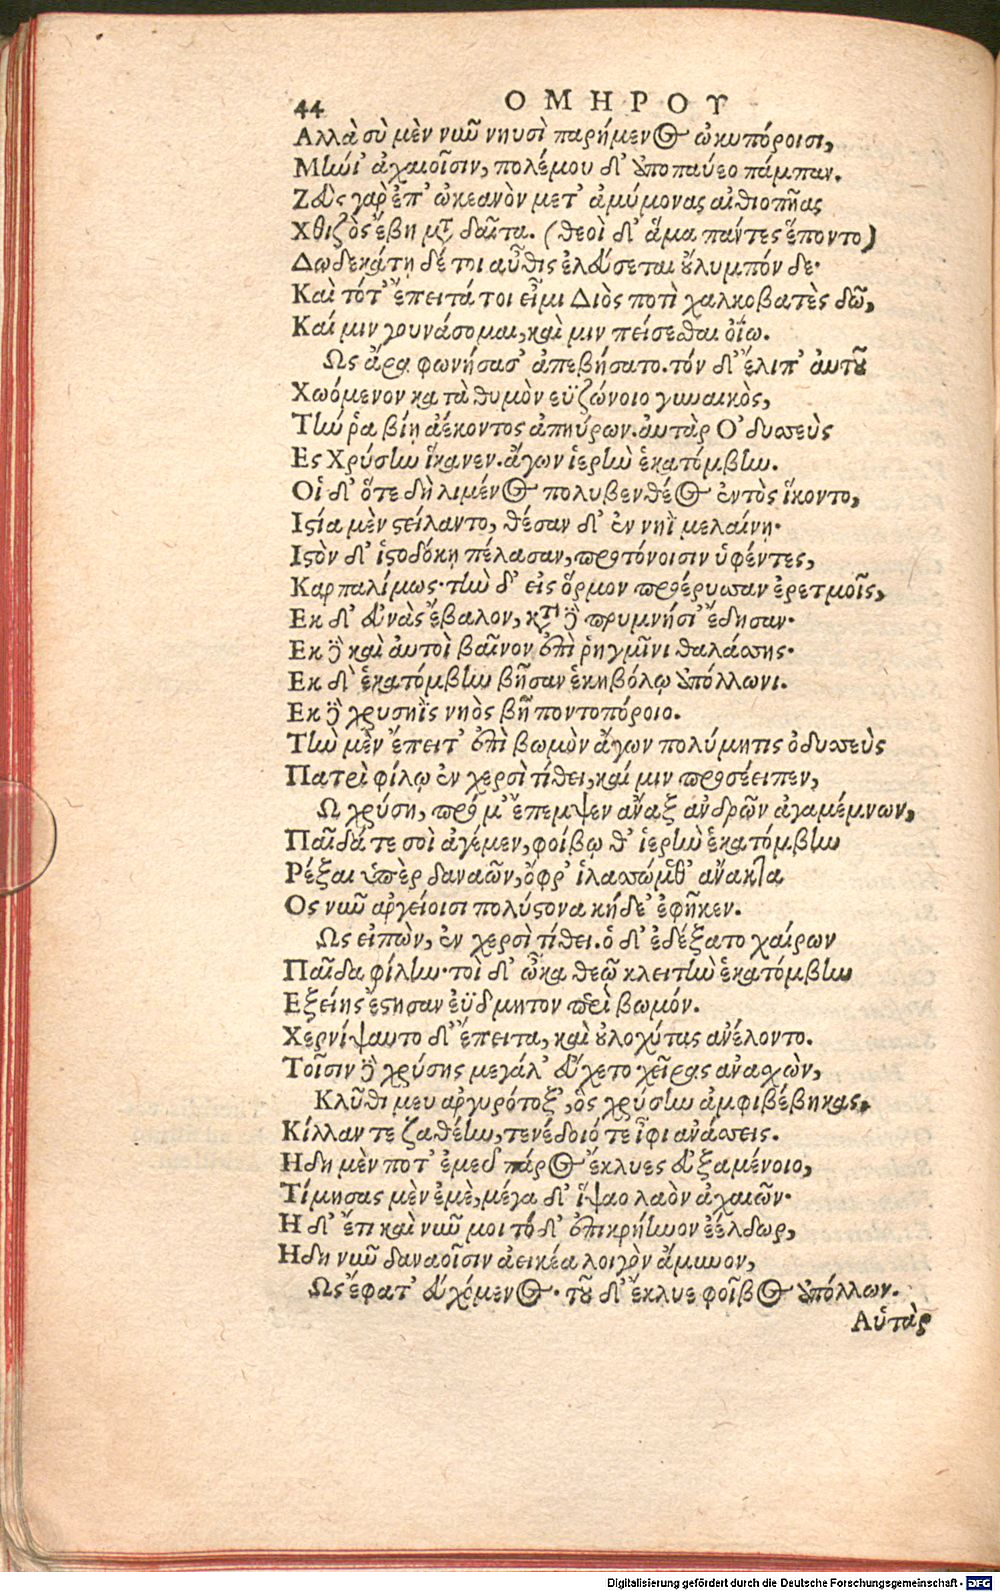 44 ΟΜΗΡΟΥ
Αλλὰ σὺ μὲν νῦν νηυσὶ παρήμενος ὠκυπόροισι,
Μήνι' ἀχαιοῖσιν, πολέμου δ' ἀποπαύεο πάμπαν.
Ζεὺς γαρ ἐπ' ὠκεανὸν μετ' ἀμύμονας αἰθιοπῆας
Χθιζὸς ἔβη μτ δαῖτα. (θεοὶ δ' ἅμα πάντες ἕποντο)
Δωδεκάτῃ δέ τοι αὖθις ἐλεύσεται ὄλυμπόν δε·
Καὶ τότ' ἔπειτά τοι εἶμι Διὸς ποτὶ χαλκοβατὲς δῶ,
Καί μιν γουνάσομαι, καὶ μιν πείσεσθαι ὀΐω.
Ως ἄρα φωνήσασ' ἀπεβήσατο. τόν δ' ἔλιπ' ἀυτοῦ
Χωόμενον κατὰ θυμὸν εϋζώνοιο γυναικὸς,
Τήν ῥα βίῃ ἀέκοντος ἀπηύρων. ἀυτὰρ Ο'δυσσεὺς
Ες Χρύσην ἵκανεν. ἄγων ἱερὴν ἑκατόμβην.
Οἱ δ' ὅτε δὴ λιμένος πολυβενθέος ἐντὸς ἵκοντο,
Ιστία μὲν στείλαντο, θέσαν δ' ἐν νηῒ μελαίνῃ·
Ιστὸν δ' ἱστοδόκῃ πέλασαν, προτόνοισιν ὑφέντες,
Καρπαλίμως· τὴν δ' εἰς ὅρμον προέρυσσαν ἐρετμοῖς,
Εκ δ' εὐνὰς ἔβαλον, κτ δὲ πρυμνήσι' ἔδησαν·
Εκ δὲ καὶ ἀυτοὶ βαῖνον ἐπὶ ῥηγμῖνι θαλάσσης·
Εκ δ' ἑκατόμβην βῆσαν ἑκηβόλῳ ἀπόλλωνι.
Εκ δὲ χρυσηῒς νηὸς βῆ ποντοπόροιο.
Τὴν μὲν ἔπειτ' ἐπὶ βωμὸν ἄγων πολύμητις ὀδυσσεὺς
Πατρὶ φίλῳ ἐν χερσὶ τίθει, καί μιν προσέειπεν,
Ω χρύση, πρό μ' ἔπεμψεν ἄναξ ἀνδρῶν ἀγαμέμνων,
Παῖδά τε σοὶ ἀγέμεν, φοίβῳ θ' ἱερὴν ἑκατόμβην
Ρέξαι ὑπὲρ δαναῶν, ὄφρ' ἱλασσώμεθ' ἄνακτα
Ος νῦν ἀργείοισι πολύστονα κήδε' ἐφῆκεν.
Ως εἰπὼν, ἐν χερσὶ τίθει. ὁ δ' ἐδέξατο χαίρων
Παῖδα φίλην· τοὶ δ' ὦκα θεῷ κλειτὴν ἑκατόμβην
Εξείης ἔστησαν ἐΰδμητον περὶ βωμόν.
Χερνίψαντο δ' ἔπειτα, καὶ οὐλοχύτας ἀνέλοντο.
Τοῖσιν δὲ χρύσης μεγάλ' εὔχετο χεῖρας ἀνασχὼν,
Κλῦθι μευ ἀργυρότοξ', ὃς χρύσην ἀμφιβέβηκας,
Κίλλαν τε ζαθέην, τενέδοιό τε ἶφι ἀνάσσεις.
Ηδη μὲν ποτ' ἐμεῦ πάρος ἔκλυες εὐξαμένοιο,
Τίμησας μὲν ἐμὲ, μέγα δ' ἴψαο λαὸν ἀχαιῶν·
Η δ' ἔτι καὶ νῦν μοι τόδ' ἐπικρήηνον ἐέλδωρ,
Ηδη νῦν δαναοῖσιν ἀεικέα λοιγὸν ἄμυνον,
Ως ἔφατ' εὐχόμενος· τοῦ δ' ἔκλυε φοῖβος ἀπόλλων.
Αὐτὰρ
Digitalisierung gefördert durch die Deutsche Forschungsgemeinschaft - DFG